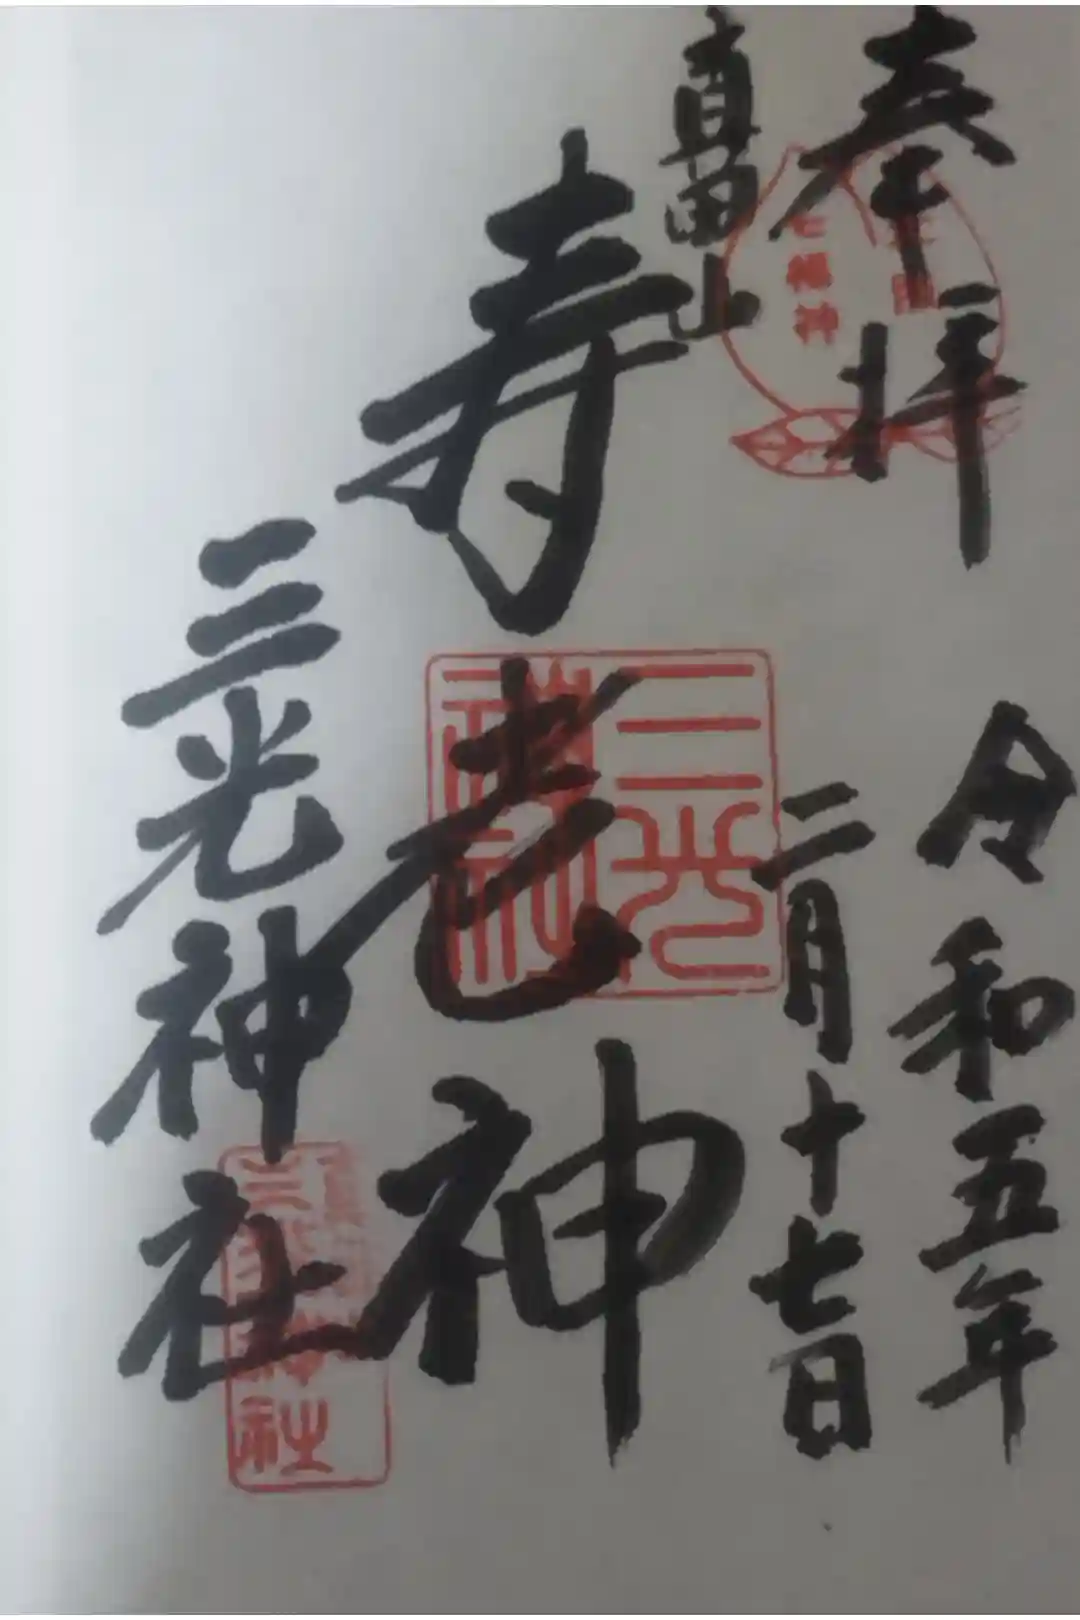 奉拝
令和五年
二月十七日
真田山
寿老神
三光神社
三光
神社
七福神
神社